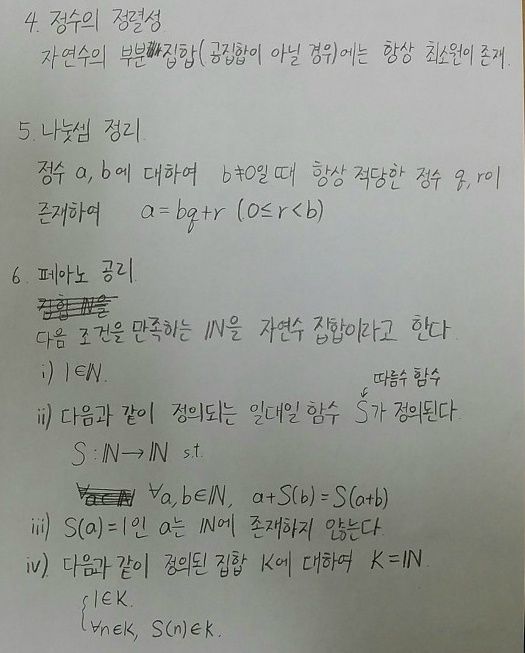 4. 정수의 정렬성
자연수의 부분 집합(공집합이 아닐 경우)에는 항상 최소원이 존재.
5. 나눗셈 정리.
정수 a, b에 대하여 b≠0일 때 항상 적당한 정수 q, r이
존재하여 a=bq+r (0≤r<b)
6. 페아노 공리.
집합 ℕ을
다음 조건을 만족하는 ℕ을 자연수 집합이라고 한다.
i) 1∈ℕ.
따름수 함수
ii) 다음과 같이 정의되는 일대일 함수 S가 정의된다.
S : ℕ→ℕ s.t.
∀a∈ℕ ∀a, b∈ℕ, a+S(b)=S(a+b)
iii) S(a)=1인 a는 ℕ에 존재하지 않는다.
iv) 다음과 같이 정의된 집합 K에 대하여 K=ℕ.
1∈K.
∀n∈K, S(n)∈K.